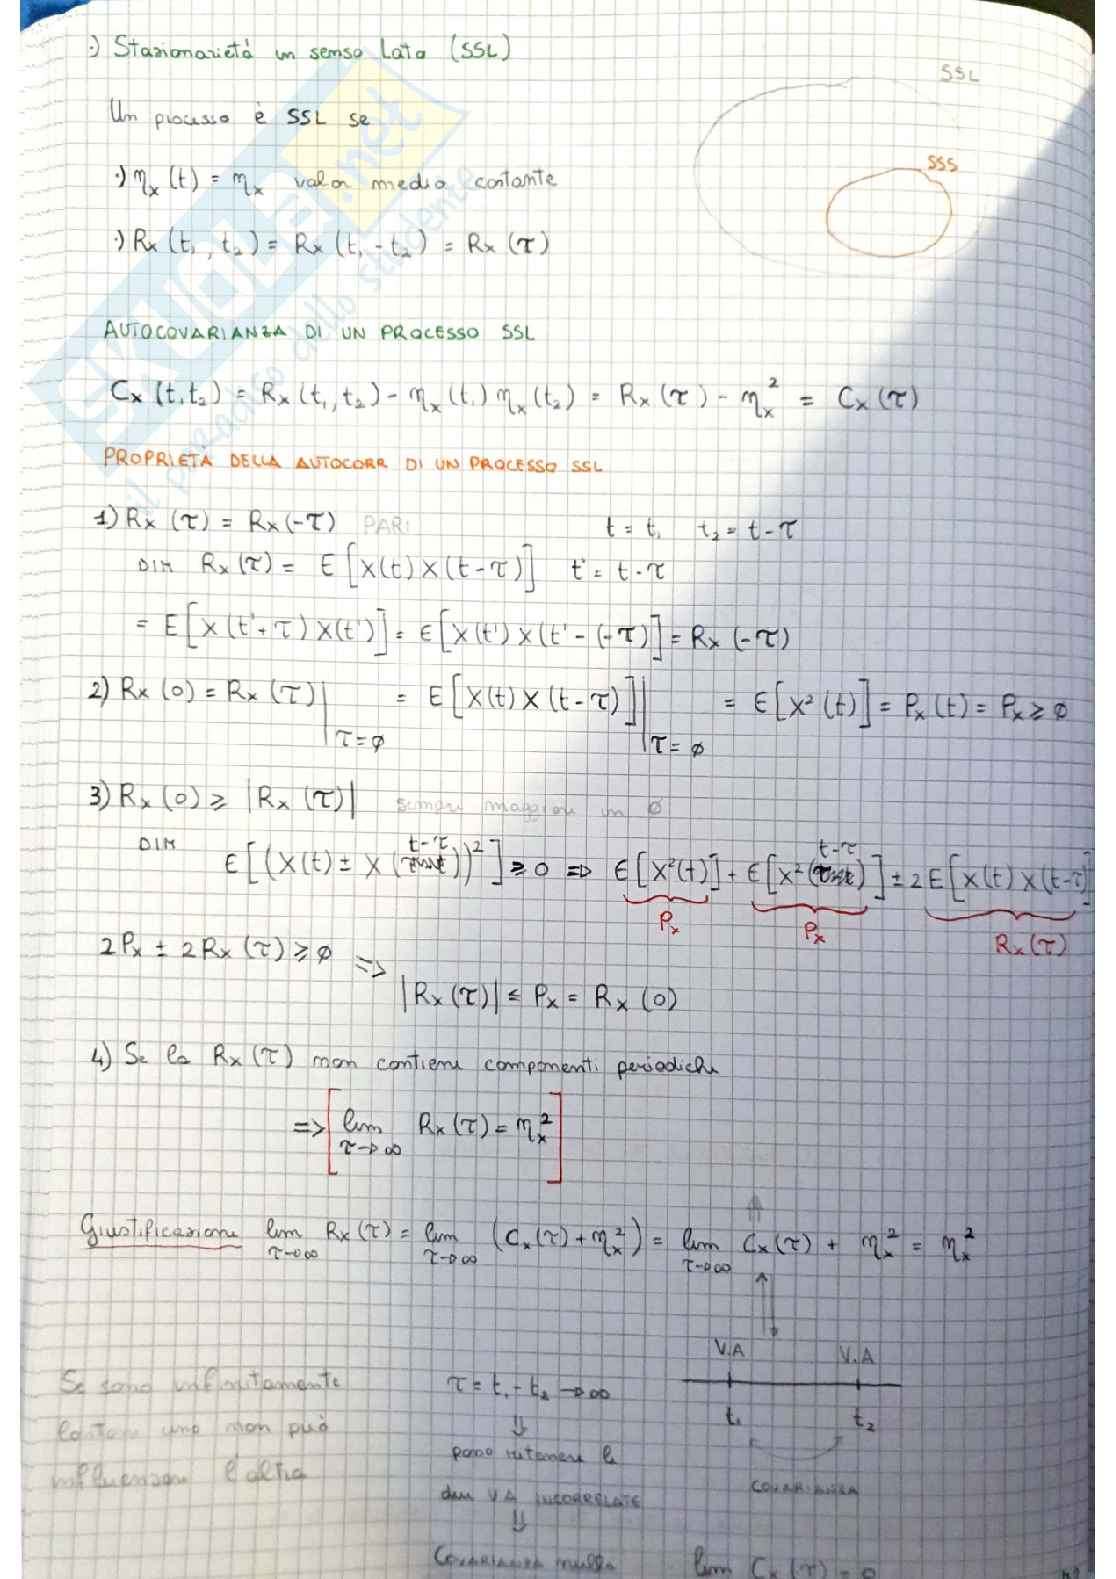 ·) Stazionarietà in senso lato (SSL)
SSL
Un processo è SSL se
SSS
·) η_x (t) = η_x valor medio costante
·) R_x (t_1, t_2) = R_x (t_1 - t_2) = R_x (τ)
AUTOCOVARIANZA DI UN PROCESSO SSL
C_x (t_1 t_2) = R_x (t_1, t_2) - η_x (t_1) η_x (t_2) = R_x (τ) - η_x^2 = C_x (τ)
PROPRIETÀ DELLA AUTOCORR DI UN PROCESSO SSL
1) R_x (τ) = R_x (-τ) PARI t = t_1 t_2 = t - τ
DIM R_x (τ) = E [X(t) X(t-τ)] t' = t - τ
= E [X (t'+τ) X(t')] = E [X(t') X(t' - (-τ)] = R_x (-τ)
2) R_x (0) = R_x (τ) | τ=ø = E [X(t) X (t-τ)] | τ=ø = E [X² (t)] = P_x (t) = P_x ≥ ø
3) R_x (0) ≥ |R_x (τ)| sempre maggiore in 0
DIM E [(X(t) ± X (t-τ))²] ≥ 0 => E [X²(t)] + E [X² (t-τ)] ± 2 E [X(t) X(t-τ)]
P_x P_x R_x (τ)
2 P_x ± 2 R_x (τ) ≥ ø =>
|R_x (τ)| ≤ P_x = R_x (0)
4) Se la R_x (τ) non contiene componenti periodiche
=> [lim τ→∞ R_x (τ) = η_x^2]
Giustificazione lim τ→∞ R_x (τ) = lim τ→∞ (C_x (τ) + η_x^2) = lim τ→∞ C_x (τ) + η_x^2 = η_x^2
V.A V.A
Se sono infinitamente
lontane una non può
influenzare l'altra
τ = t_1 - t_2 → ∞
t_1 t_2
posso ritenere le
due VA INCORRELATE
COVARIANZA
COVARIANZA nulla lim C_x (τ) = 0
SKUOLA.net
il paradiso dello studente